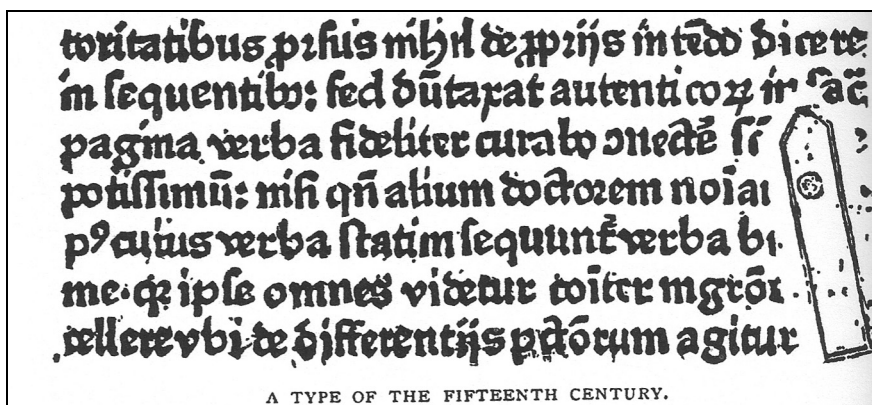 toritatibus pꝛsius nihil de ꝓpꝛijs intēdo dicere
in sequentibꝰ: sed dūtaxat autenticoꝝ in sac̄
pagina verba fideliter curabo ꝯnectē
potissimū: nisi qn̄ alium doctoꝛem
pꝰ cuius verba statim sequunt᷑ verba
me. qꝛ ipse omnes videtur cōiter
cellere vbi de differentijs pctōꝛum agitur
A TYPE OF THE FIFTEENTH CENTURY.